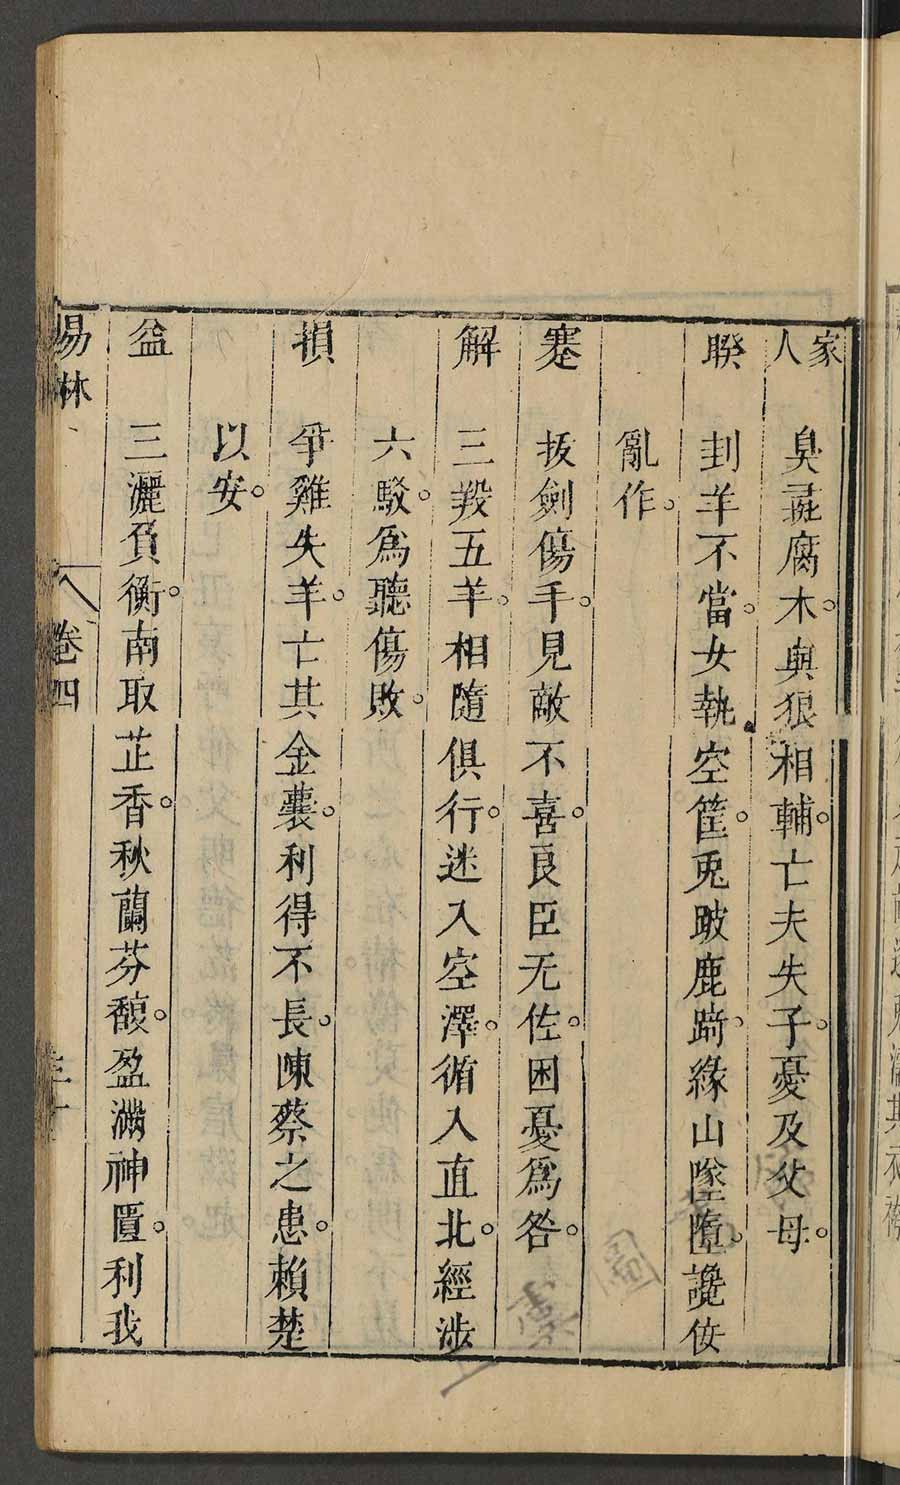 家人　臭彘腐木。與狼相輔。亡夫失子。憂及父母。
睽　刲羊不當。女執空筐。兎跛鹿踦。緣山墜墮。讒佞
亂作。
蹇　拔劍傷手。見敵不喜。良臣无佐。困憂爲咎。
解　三羖五羊。相隨俱行。迷入空澤。循入直北。經涉
六駁。爲聽傷敗。
損　爭雞失羊。亡其金囊。利得不長。陳蔡之患。賴楚
以安。
益　三灑負衡。南取芷香。秋蘭芬馥。盈滿神匱。利我
易林　卷四